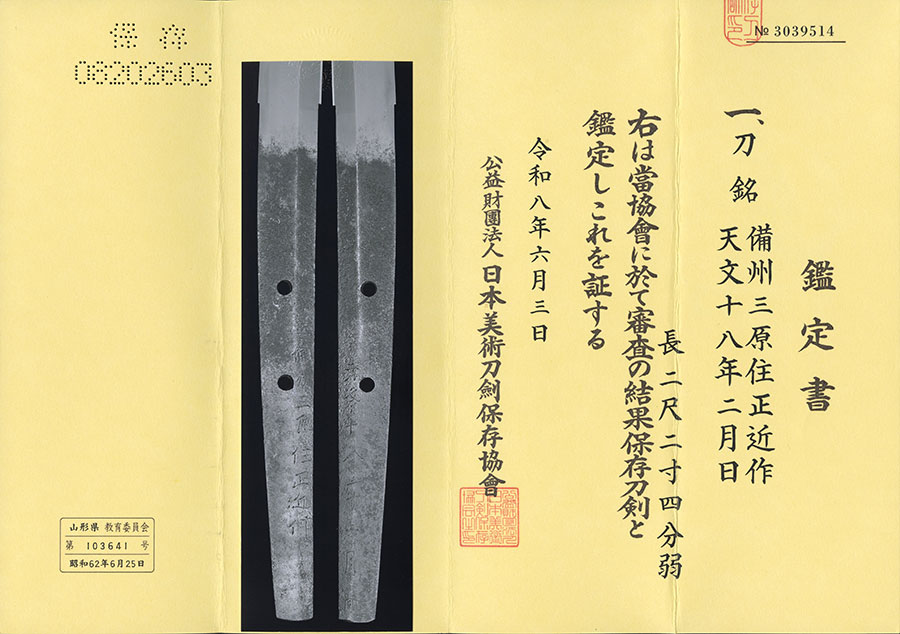 № 3039514
鑑定書
一、刀 銘 備州三原住正近作
天文十八年二月日
長 二尺二寸四分弱
右は當協會に於て審査の結果保存刀剣と
鑑定しこれを証する
令和八年六月三日
公益財團法人 日本美術刀劍保存協會
保存
08202603
山形県 教育委員会
第 103641 号
昭和62年6月25日